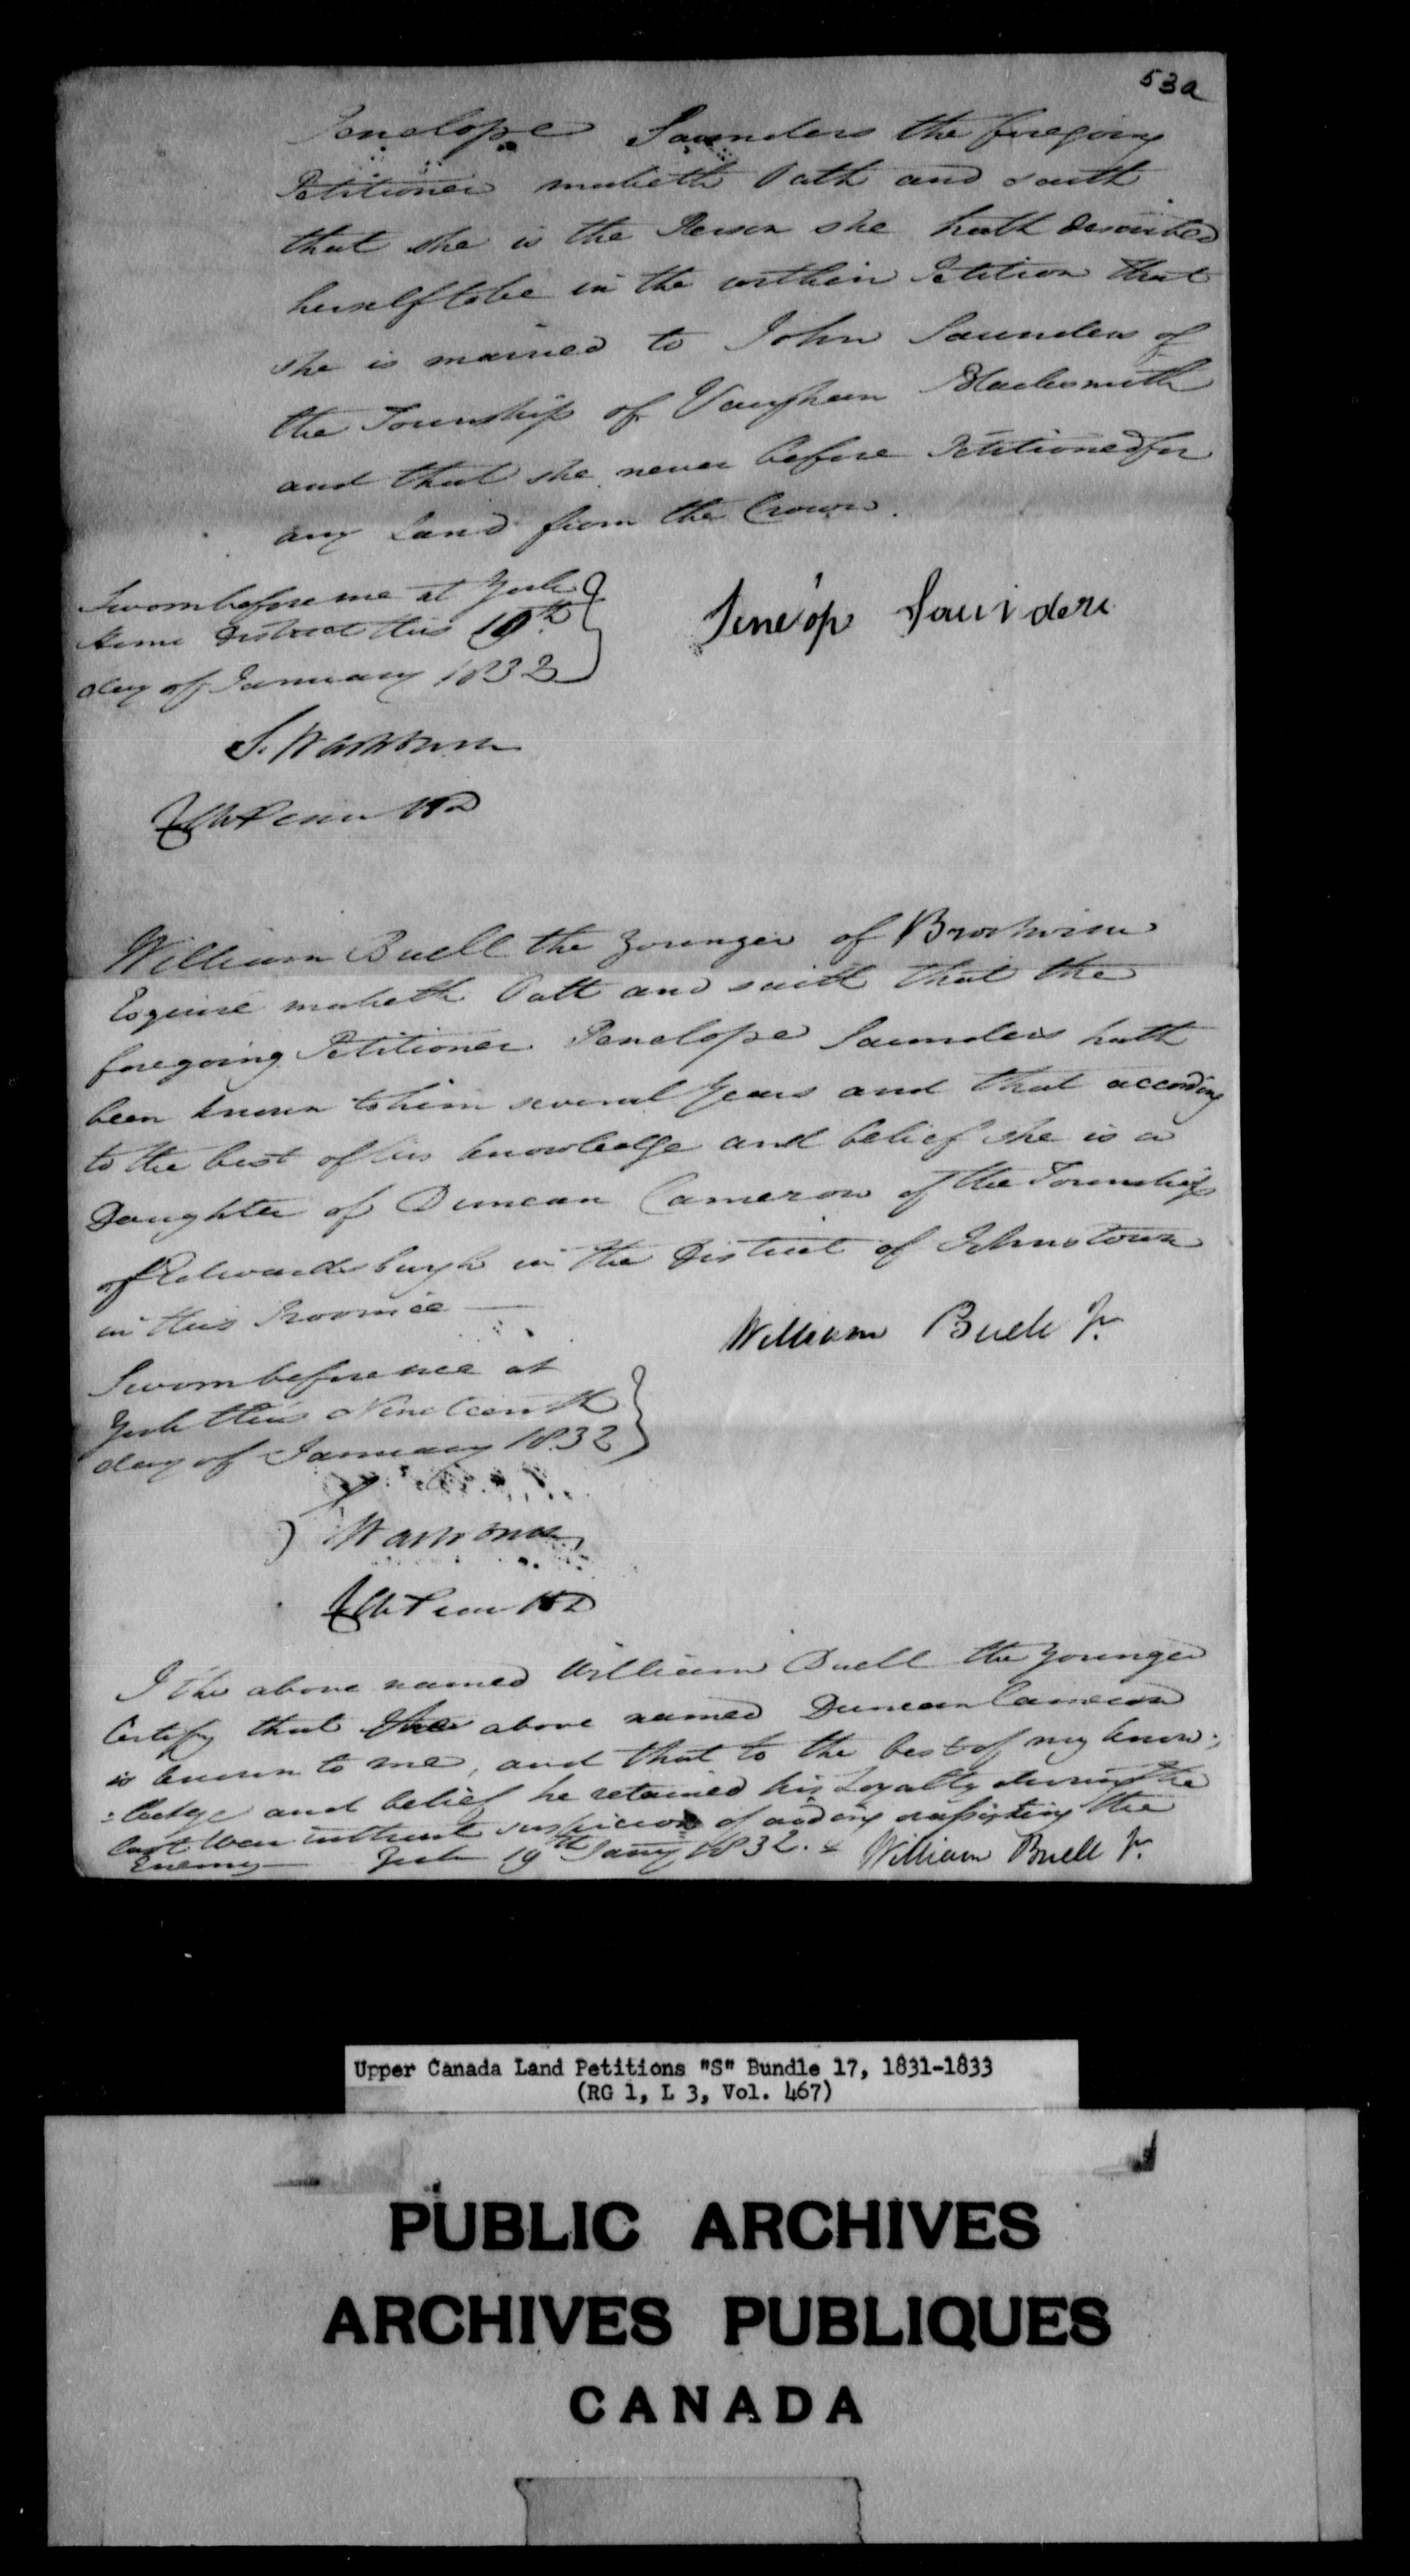 53a
Penelope Saunders the foregoing
Petitioner maketh Oath and saith
that she is the Person she hath described
herself to be in the within Petition that
she is married to John Saunders of
the Township of Vaughan Blacksmith
and that she never before Petitioned for
any Land from the Crown.
Sworn before me at York
Home District this 19th
day of January 1832
Penelop Saunders
S. Washburn
William Buell the Younger of Brockville
Esquire maketh Oath and saith that the
foregoing Petitioner Penelope Saunders hath
been known to him several Years and that according
to the best of his knowledge and belief she is a
Daughter of Duncan Cameron of the Township
of Edwardsburgh in the District of Johnstown
in this Province
William Buell Jr.
Sworn before me at
York this Nineteenth
day of January 1832
S. Washburn
I the above named William Buell the Younger
Certify that the above named Duncan Cameron
is known to me, and that to the best of my know-
:ledge and belief he retained his Loyalty during the
last War without suspicion of aiding or assisting the
Enemy — York 19th Jany 1832. William Buell Jr.
Upper Canada Land Petitions "S" Bundle 17, 1831-1833
(RG 1, L 3, Vol. 467)
PUBLIC ARCHIVES
ARCHIVES PUBLIQUES
CANADA